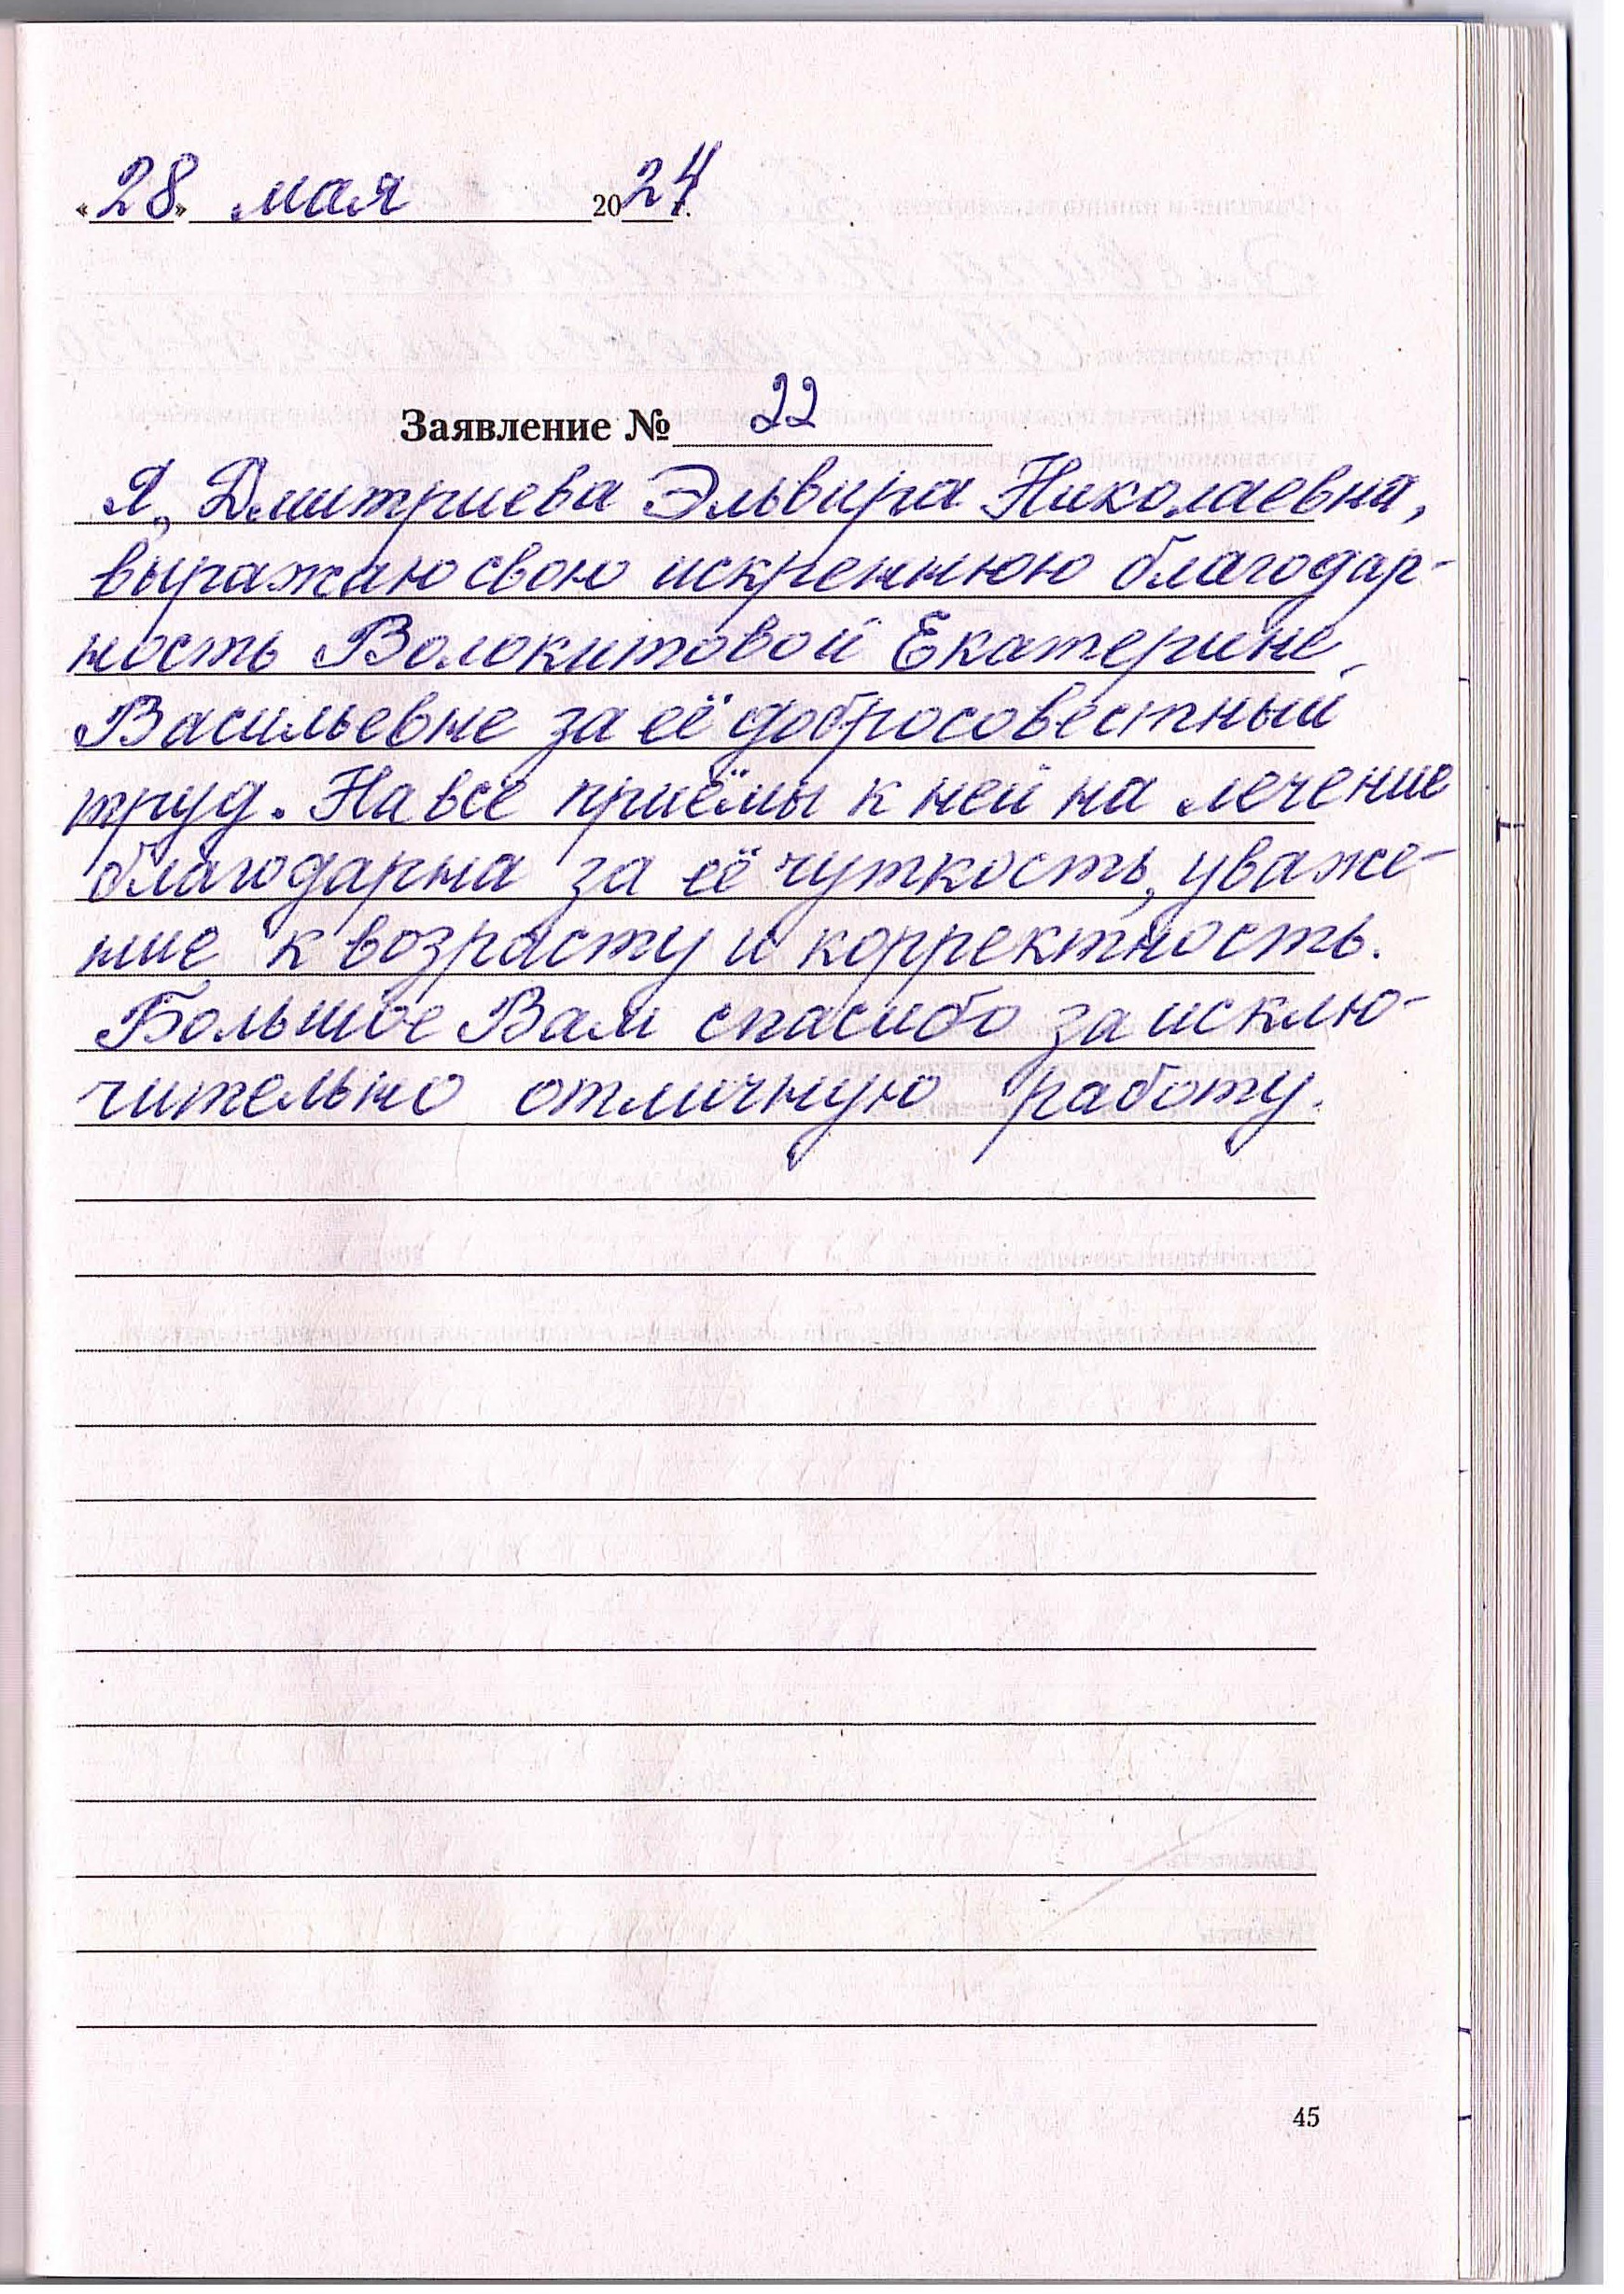 «28» мая 2024 г.
Заявление № 22
Я, Дмитриева Эльвира Николаевна,
выражаю свою искреннюю благодар-
ность Волокитовой Екатерине
Васильевне за её добросовестный
труд. На все приёмы к ней на лечение
благодарна за её чуткость, уваже-
ние к возрасту и корректность.
Большое Вам спасибо за исклю-
чительно отличную работу.
45